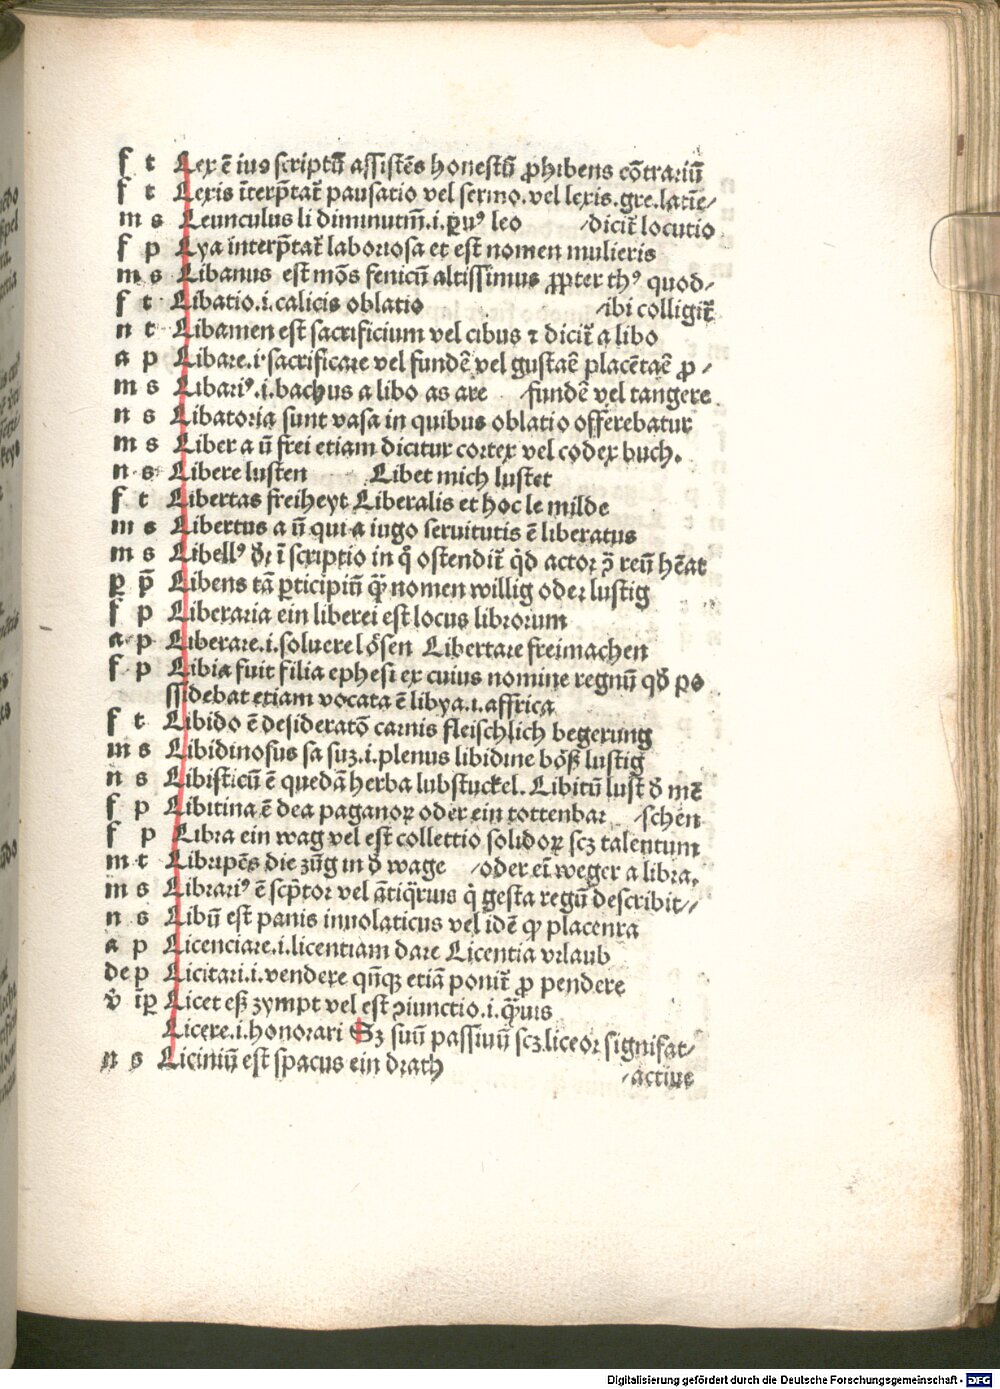 f t Lex ē ius scriptū assistēs honestū ꝓhibens cōtrariū
f t Lexis īterp̄tat̄ pausatio vel sermo. vel lexis. gre. latīe⸗
m s Leunculus li diminutiū .i. ꝑuꝰ leo ⸗dicit̄ locutio
f p Lya interp̄tat̄ laboriosa et est nomen mulieris
m s Libanus est mōs fenicū altissimus ꝓpter thꝰ quod⸗
f t Libatio .i. calicis oblatio ⸗ibi colligit̄
n t Libamen est sacrificium vel cibus ⁊ dicit̄ a libo
a p Libare .i. sacrificare vel fundē vel gustaē placētaē ꝓ ⸗
m s Libariꝰ .i. bachus a libo as are ⸗fundē vel tangere
n s Libatoria sunt vasa in quibus oblatio offerebatur
m s Liber a ū frei etiam dicitur cortex vel codex buch.
n s Libere lusten Libet mich lustet
f t Libertas freiheyt Liberalis et hoc le milde
m s Libertus a ū qui a iugo seruitutis ē liberatus
m s Libellꝰ dr̄ ī scriptio in q̄ ostendit̄ q̄d actor ꝯ̄ reū hēat
ꝑ p̄ Libens tā ꝑticipiū q̄ꝫ nomen willig oder lustig
f p Liberaria ein liberei est locus librorum
a p Liberare .i. soluere lösen Libertare freimachen
f p Libia fuit filia ephesi ex cuius nomine regnū qd̄ po
ssidebat etiam vocata ē libya .i. affrica
f t Libido ē desideratō carnis fleischlich begerung
m s Libidinosus sa suꝫ .i. plenus libidine böß lustig
n s Libisticū ē quedā herba lubstuckel. Libitū lust d̄ mē
f p Libitina ē dea paganoꝝ oder ein tottenbar ⸗schen
f p Libra ein wag vel est collettio solidoꝝ scꝫ talentum
m t Libripēs die zūg in d̄ wage ⸗oder eī weger a libra.
m s Librariꝰ ē scp̄tor vel āticꝗrius q̇ gesta regū describit⸗
n s Libū est panis inuolaticus vel idē qꝫ placenta
a p Licenciare .i. licentiam dare Licentia vrlaub
de p Licitari .i. vendere qn̄qꝫ etiā ponit̄ ꝓ pendere
v̄ īꝑ Licet eß zympt vel est ꝯiunctio .i. q̄ꝫuis
Licere .i. honorari Sꝫ suū passiuū scꝫ liceor signifat⸗
n s Liciniū est spacus ein drath ⸗actiue
Digitalisierung gefördert durch die Deutsche Forschungsgemeinschaft - DFG